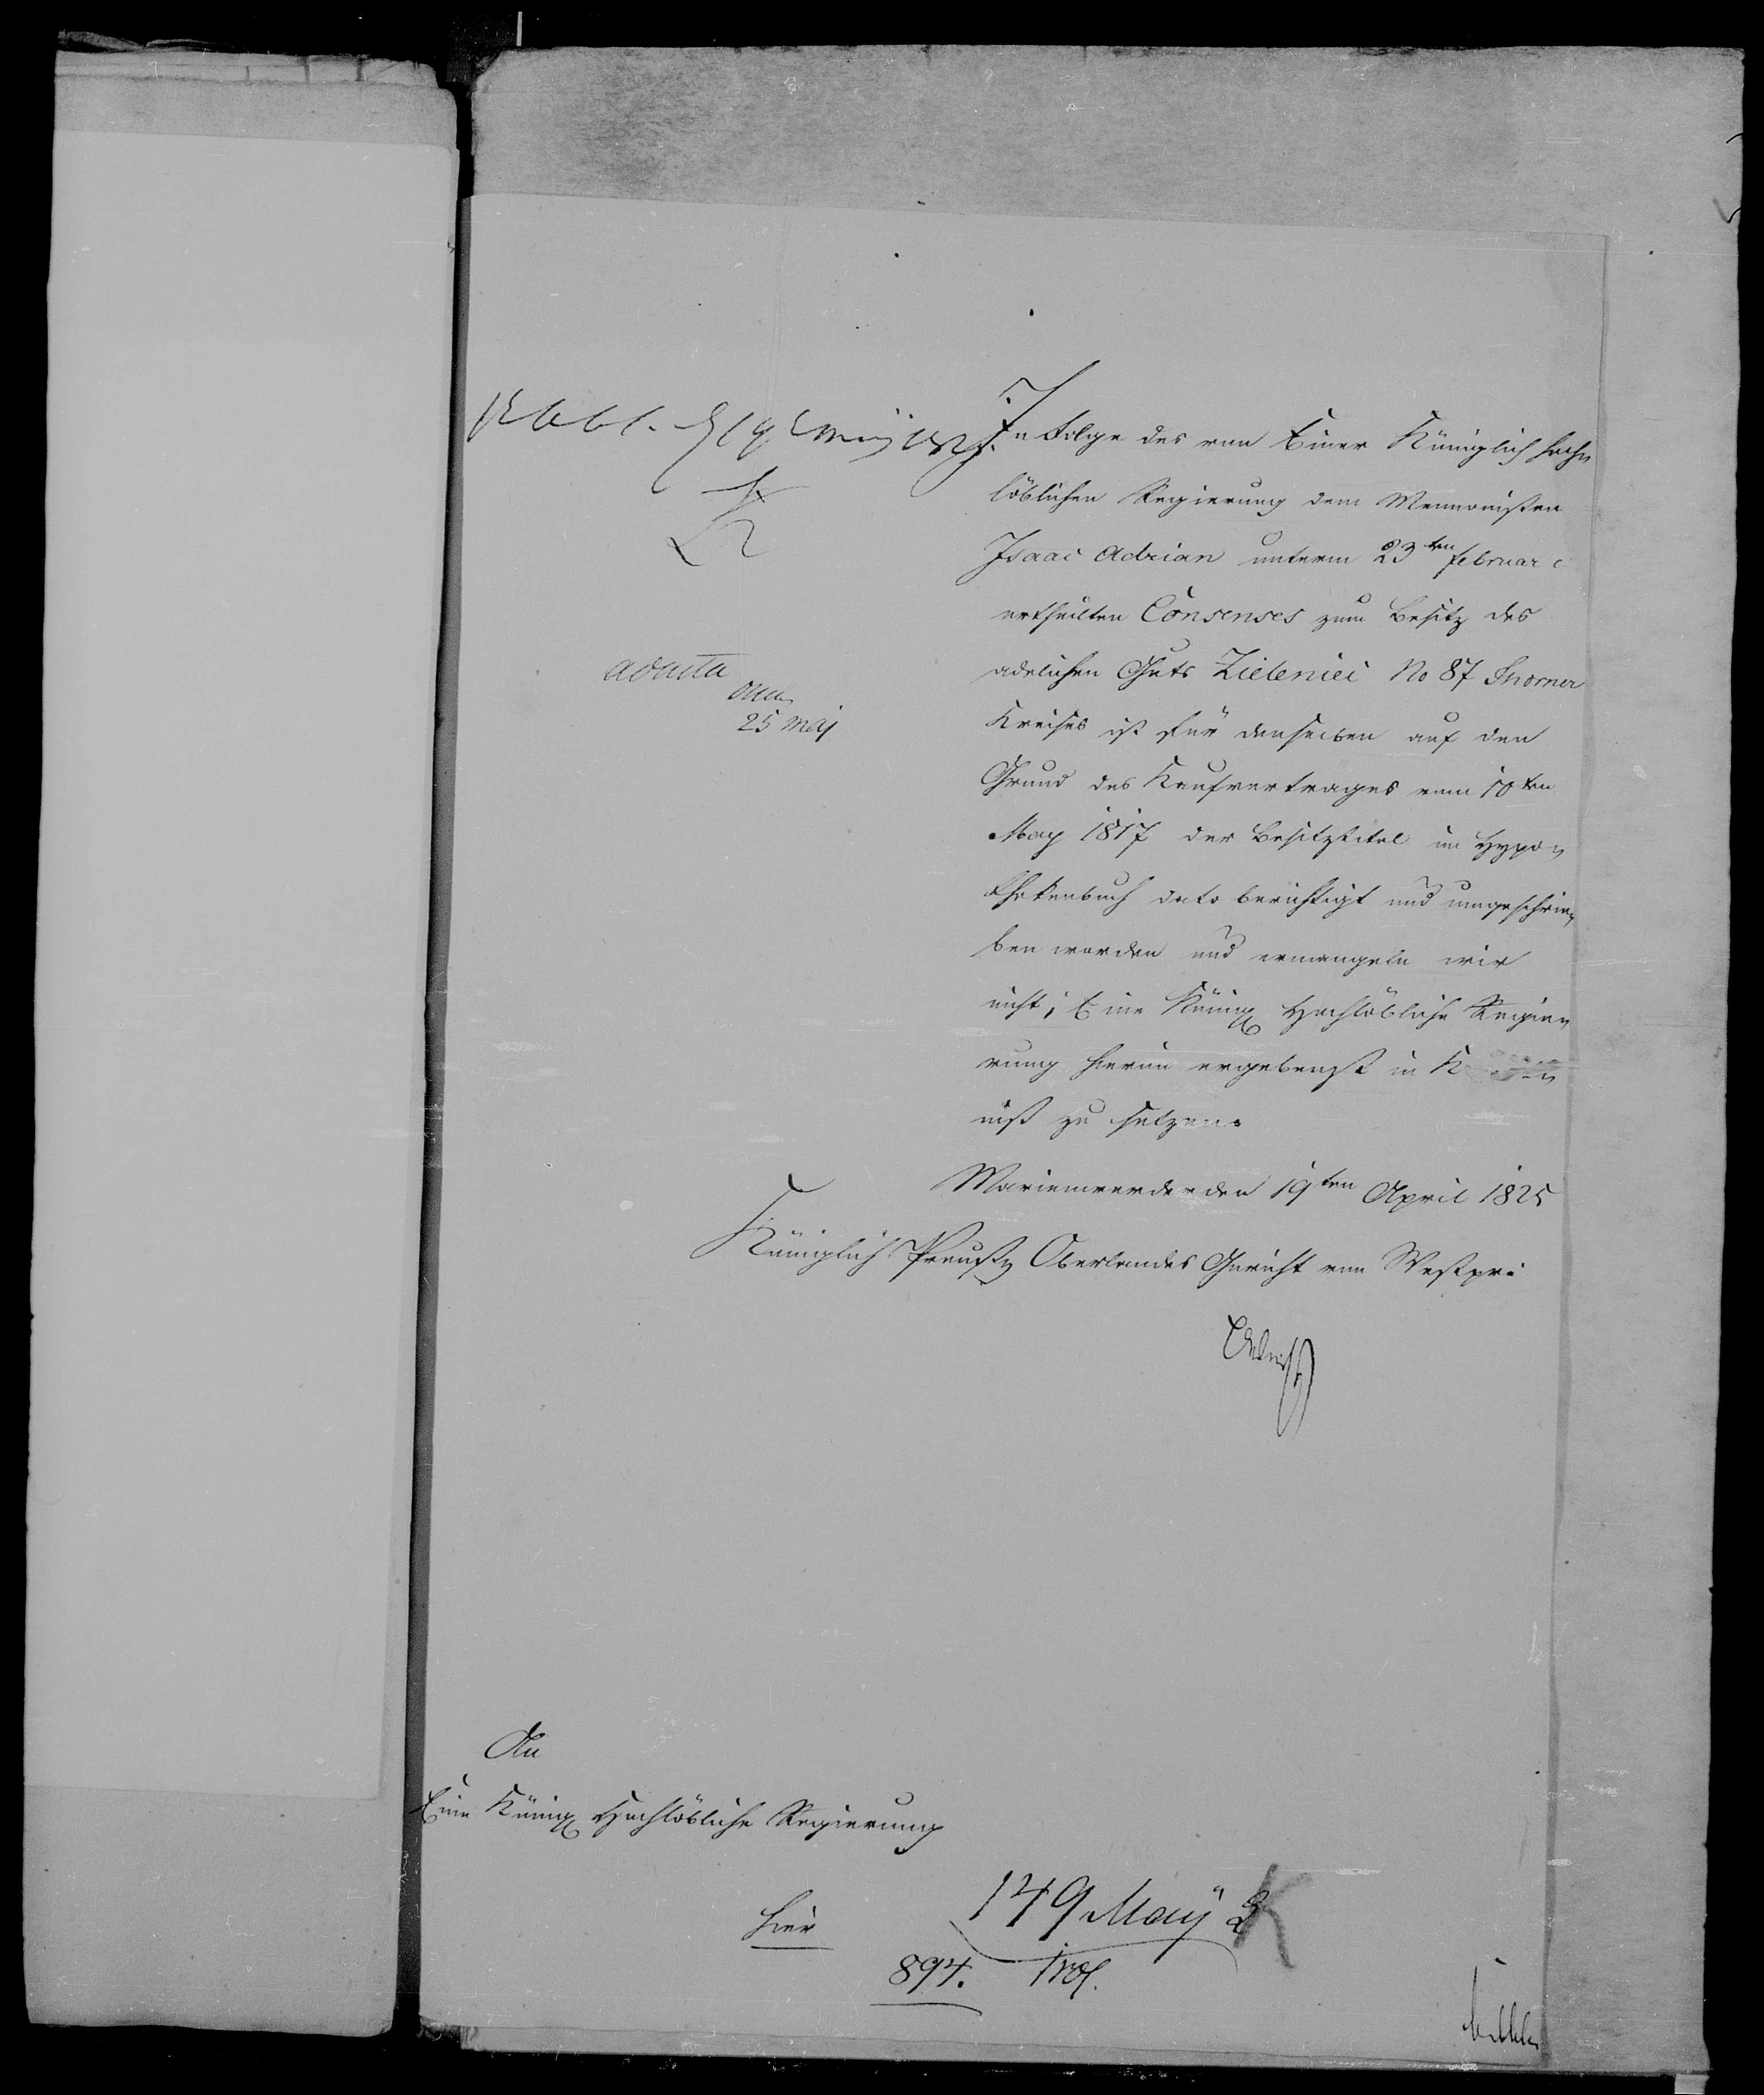 In Folge des von Einer Königlich Hoch-
löblichen Regierung dem Mennonisten
Isaac Adrian unterm 23ten Februar c
ertheilten Consenses zum Besitz des
adelichen Guts Zieleniec No 87 Thorner
Kreises ist für denselben auf den
Grund des Kaufvertrages vom 10ten
May 1817 der Besitztitel im Hypo-
thekenbuch dato berichtigt und umgeschrie-
ben worden und ermangeln wir
nicht, Eine Königl Hochlöbliche Regie-
rung hievon ergebenst in
niß zu setzen.
adacta
25 Maj
Marienwerder den 19ten April 1825
Königlich Preuß Oberlandes Gericht von Westpr:
An
Eine Königl Hochlöbliche Regierung
hier
149 May
K
894.